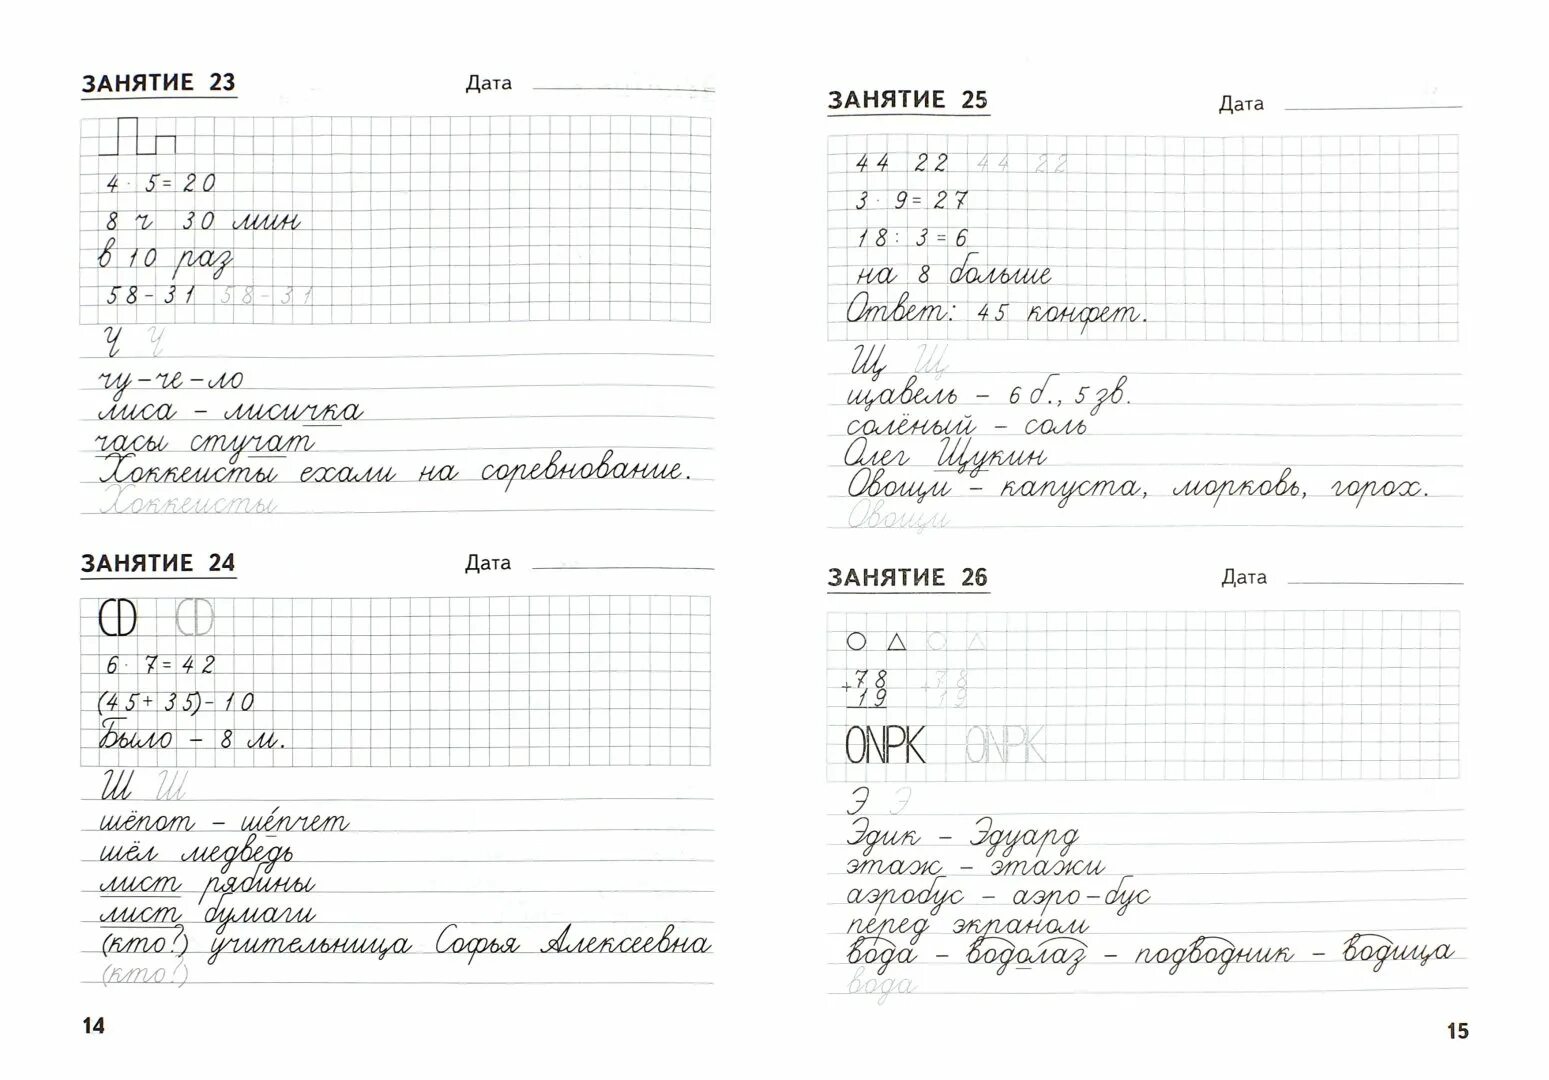 ЗАНЯТИЕ 23 Дата
4 · 5 = 20
8 ч 30 мин
в 10 раз
58 – 31 58 – 31
Ч Ч
чу – че – ло
лиса – лисичка
часы стучат
Хоккеисты ехали на соревнование.
Хоккеисты
ЗАНЯТИЕ 24 Дата
СD СD
6 · 7 = 42
(45 + 35) – 10
Было – 8 м.
Ш Ш
шёпот – ше́пчет
шёл медведь
лист рябины
лист бумаги
(кто?) учительница Софья Алексеевна
(кто?)
14
ЗАНЯТИЕ 25 Дата
44 22 44 22
3 · 9 = 27
18 : 3 = 6
на 8 больше
Ответ: 45 конфет.
Щ Щ
щавель – 6 б., 5 зв.
солёный – соль
Олег Щукин
Овощи – капуста, морковь, горох.
Овощи
ЗАНЯТИЕ 26 Дата
+78 +78
19 19
ONPK ONPK
Э Э
Эдик – Эдуард
этаж – этажи
аэробус – аэро – бус
перед экраном
вода – водолаз – подводник – водица
вода
15